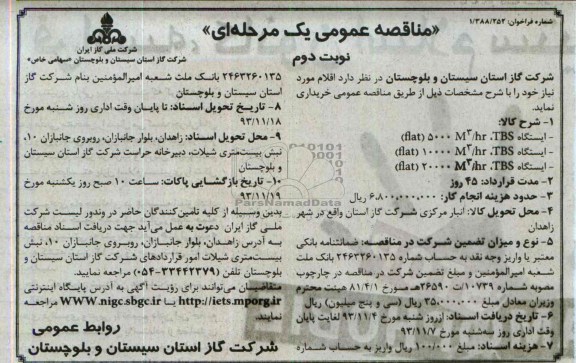 شماره فراخوان: ۱/۳۸۸/۲۵۲
«مناقصه عمومی یک مرحله‌ای»
نوبت دوم
شرکت ملی گاز ایران
شرکت گاز استان سیستان و بلوچستان «سهامی خاص»
شرکت گاز استان سیستان و بلوچستان در نظر دارد اقلام مورد
نیاز خود را با شرح مشخصات ذیل از طریق مناقصه عمومی خریداری
نماید.
۱- شرح کالا:
- ایستگاه TBS، ۵۰۰۰ M³/hr (flat)
- ایستگاه TBS، ۱۰۰۰۰ M³/hr (flat)
- ایستگاه TBS، ۲۰۰۰۰ M³/hr (flat)
۲- مدت قرارداد: ۴۵ روز
۳- حدود هزینه انجام کار: ۶،۸۰۰،۰۰۰،۰۰۰ ریال
۴- محل تحویل کالا: انبار مرکزی شرکت گاز استان واقع در شهر
زاهدان
۵- نوع و میزان تضمین شرکت در مناقصه: ضمانتنامه بانکی
معتبر یا واریز وجه نقد به حساب شماره ۲۴۶۳۲۶۰۱۳۵ بانک ملت
شعبه امیرالمؤمنین و مبلغ تضمین شرکت در مناقصه در چارچوب
مصوبه شماره ۱۰۷۳۹/ت ۲۶۵۹۰هـ مورخ ۸۱/۴/۱ هیئت محترم
وزیران معادل مبلغ ۳۵،۰۰۰،۰۰۰ ریال (سی و پنج میلیون) ریال
۶- تاریخ دریافت اسناد: ازروز شنبه مورخ ۹۳/۱۱/۴ لغایت پایان
وقت اداری روز سه‌شنبه مورخ ۹۳/۱۱/۷
۷- هزینه اسناد: مبلغ ۱۰۰/۰۰۰ ریال واریز به حساب شماره
۲۴۶۳۲۶۰۱۳۵ بانک ملت شعبه امیرالمؤمنین بنام شرکت گاز
استان سیستان و بلوچستان
۸- تاریخ تحویل اسناد: تا پایان وقت اداری روز شنبه مورخ
۹۳/۱۱/۱۸
۹- محل تحویل اسناد: زاهدان، بلوار جانبازان، روبروی جانبازان ۱۰،
نبش بیست‌متری شیلات، دبیرخانه حراست شرکت گاز استان سیستان
و بلوچستان
۱۰- تاریخ بازگشایی پاکات: ساعت ۱۰ صبح روز یکشنبه مورخ
۹۳/۱۱/۱۹
بدین وسیله از کلیه تامین‌کنندگان حاضر در وندور لیست شرکت
ملی گاز ایران دعوت به عمل می‌آید جهت دریافت اسناد مناقصه
به آدرس زاهدان، بلوار جانبازان، روبروی جانبازان ۱۰، نبش
بیست‌متری شیلات امور قراردادهای شرکت گاز استان سیستان و
بلوچستان تلفن (۳۳۴۴۲۳۷۹-۰۵۴) مراجعه نمایید.
متقاضیان می‌توانند برای رؤیت آگهی به آدرس اینترنتی
http://iets.mporg.ir یا WWW.nigc.sbgc.ir مراجعه
نمایند.
روابط عمومی
شرکت گاز استان سیستان و بلوچستان
ParsNamadData